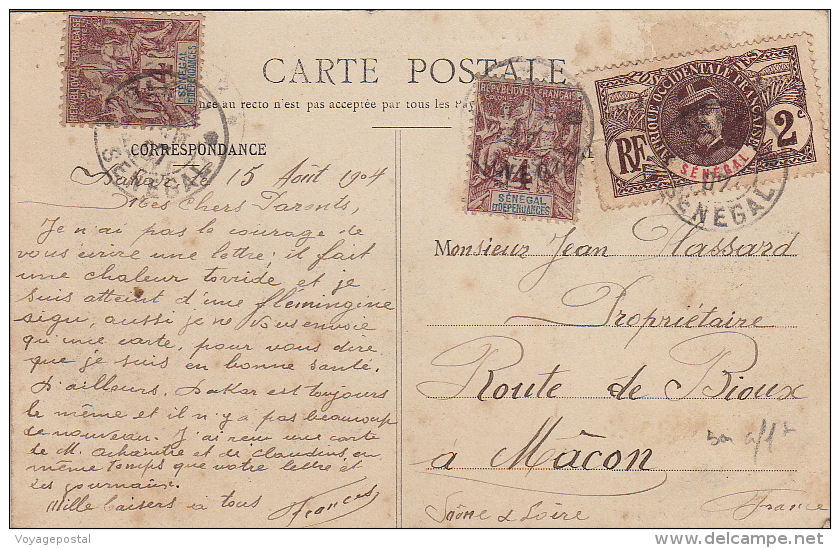 CARTE POSTALE
nce au recto n'est pas acceptée par tous les Pay
CORRESPONDANCE
RÉPUBLIQUE FRANÇAISE
4
SÉNÉGAL
ET DÉPENDANCES
RÉPUBLIQUE FRANÇAISE
4
SÉNÉGAL
ET DÉPENDANCES
AFRIQUE OCCIDENTALE FRANÇAISE
RF
2c
SÉNÉGAL
SENEGAL
SENEGAL
SENEGAL
15 Août 1904
Mes Chers Parents,
Je n'ai pas le courage de
vous écrire une lettre; il fait
une chaleur torride et je
suis atteint d'une flémingine
aigu, aussi je ne vous envoie
qu'une carte, pour vous dire
que je suis en bonne santé.
D'ailleurs, Dakar est toujours
le même et il n'y a pas beaucoup
de nouveau. J'ai reçu une carte
de M. et de Claudius, en
même temps que votre lettre et
les journaux.
Mille baisers à tous
Monsieur Jean Massard
Propriétaire
Route de Bioux
à Mâcon
Saône & Loire
France
Voyagepostal
www.delcampe.net